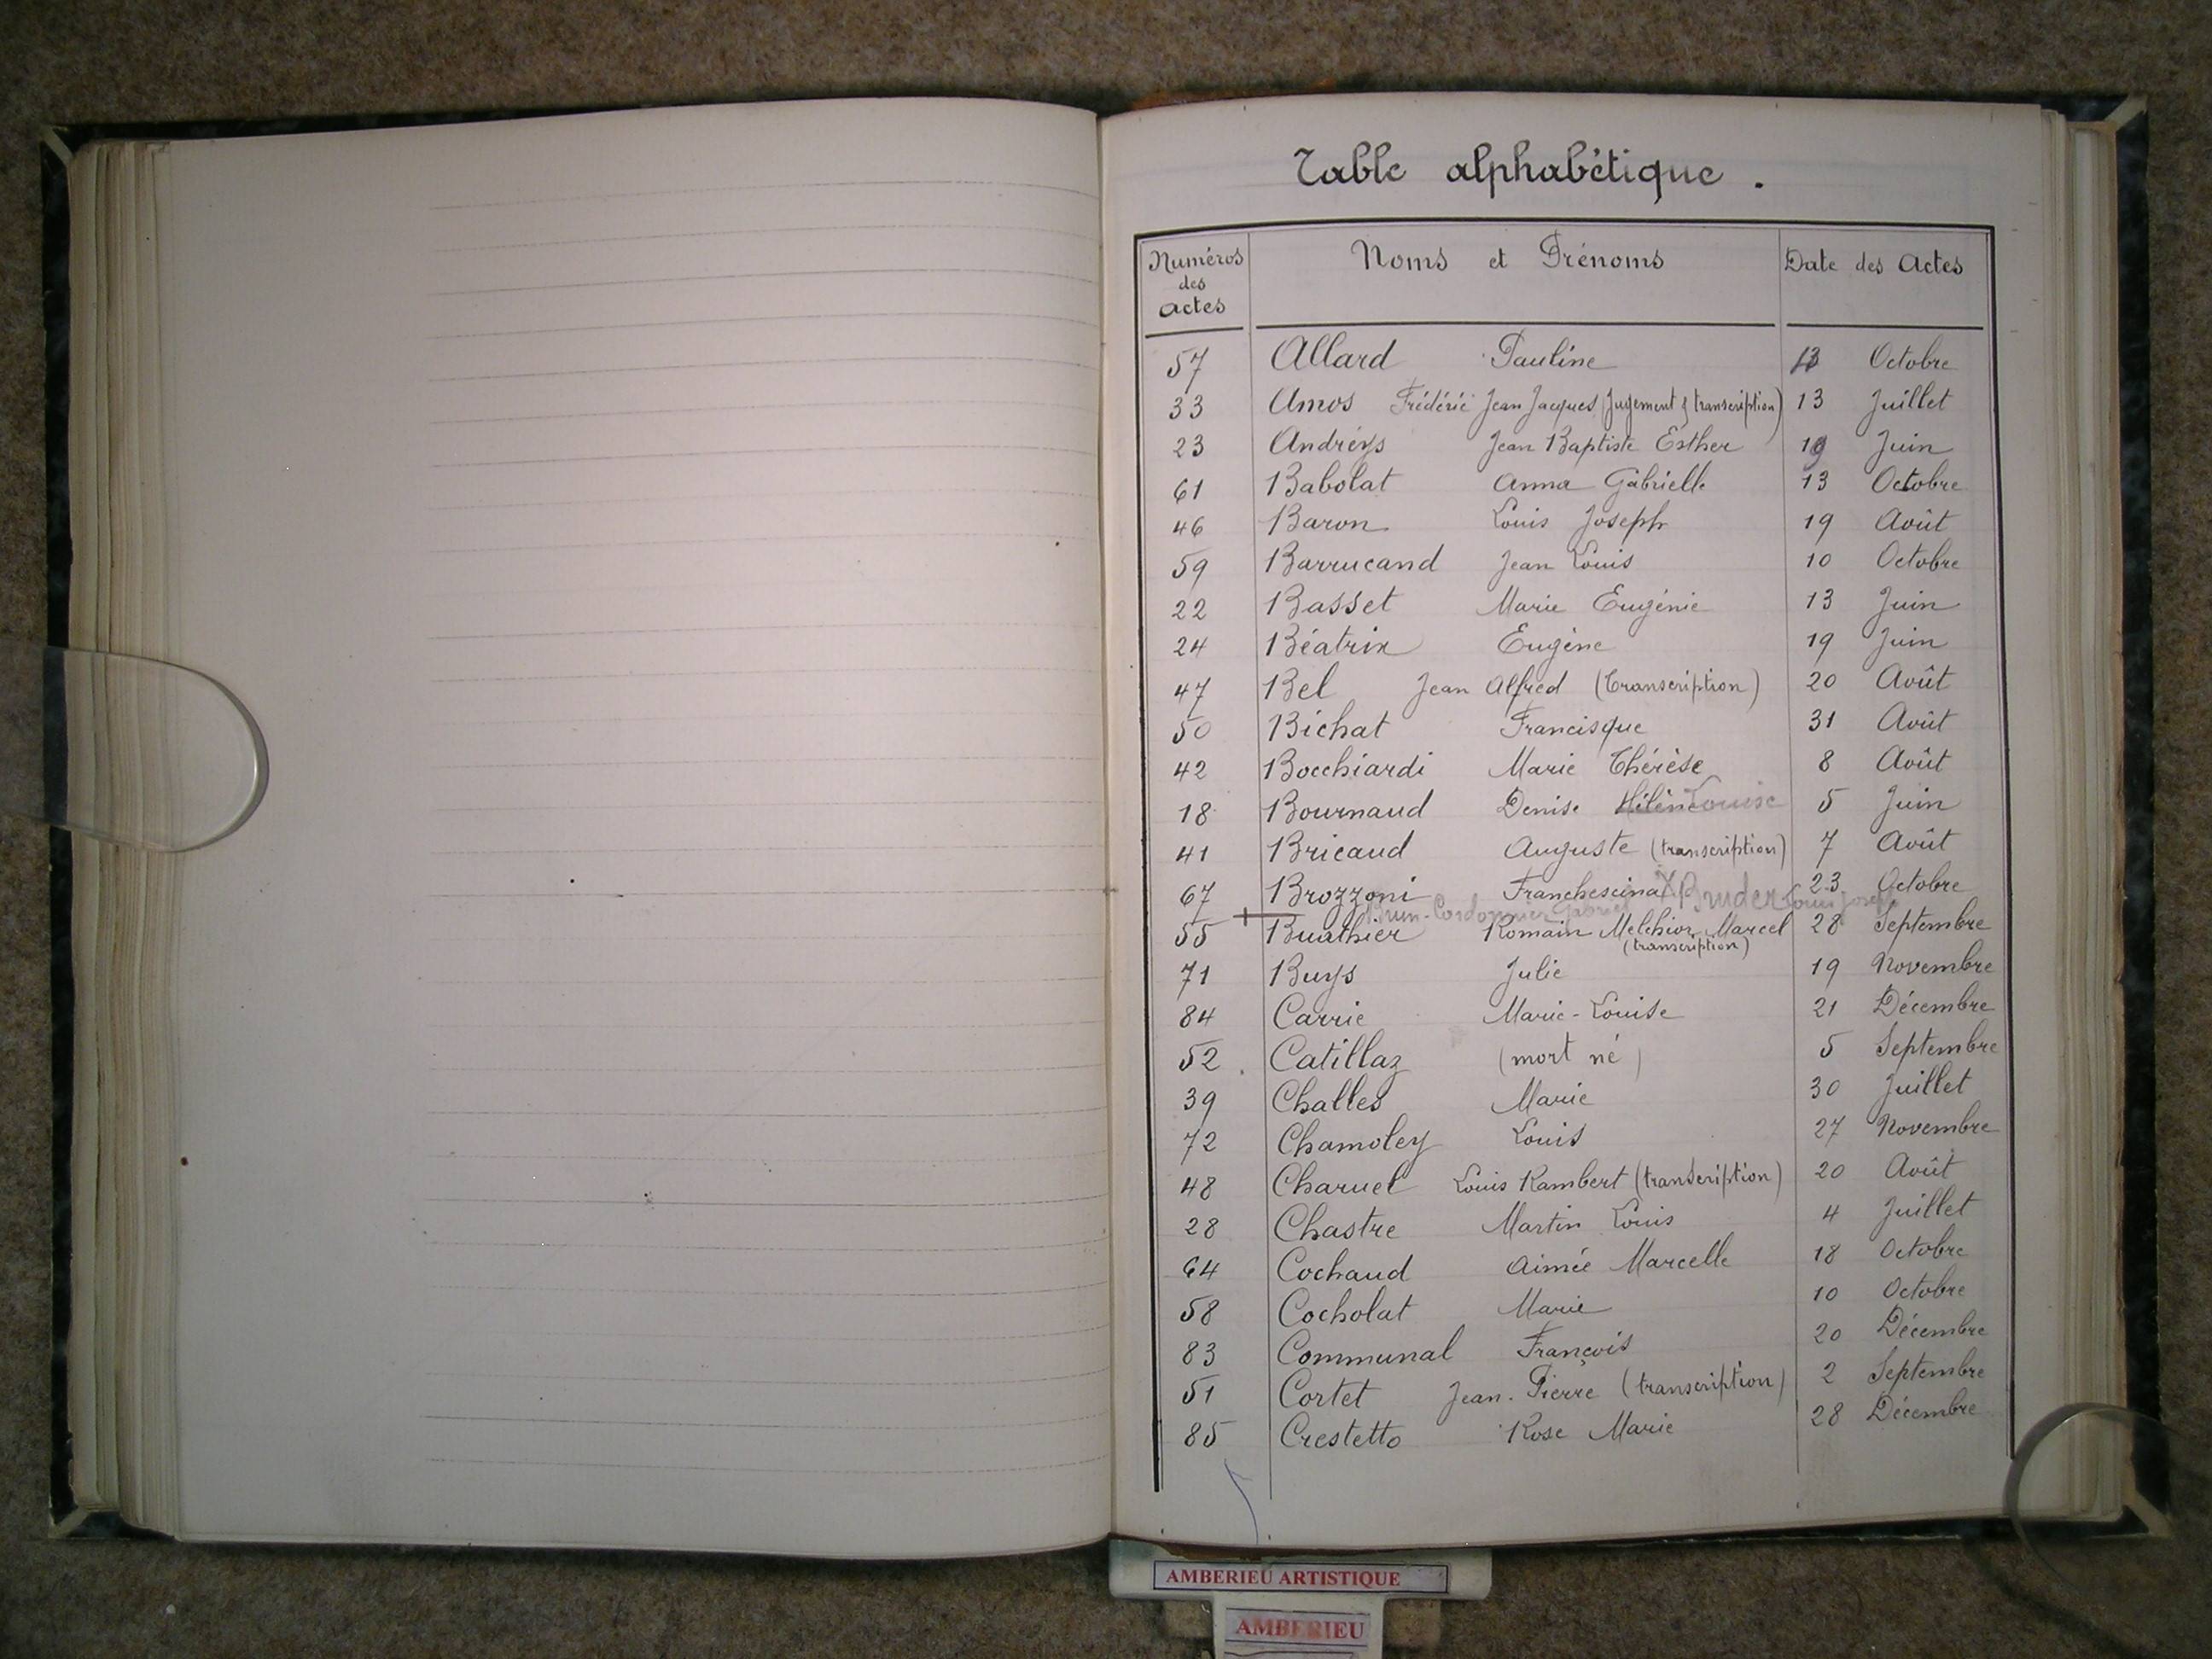 Table alphabétique.
Numéros des actes Noms et Prénoms Date des Actes
57 Allard Pauline Octobre
33 Amos Frédéric Jean Jacques (Jugement transcription) 13 Juillet
23 Andréys Jean Baptiste Esther 19 Juin
61 Babolat Anna Gabrielle 13 Octobre
46 Baron Louis Joseph 19 Août
59 Barrucand Jean Louis 10 Octobre
22 Basset Marie Eugénie 13 Juin
24 Béatrix Eugène 19 Juin
47 Bel Jean Alfred (transcription) 20 Août
50 Bichat Francisque 31 Août
42 Bocchiardi Marie Thérèse 8 Août
18 Bournaud Denise Hélène Louise 5 Juin
41 Bricaud Auguste (transcription) 7 Août
67 Brozzoni Franchescina 23 Octobre
+ Brun-Cordonnier Gabriel X Bruder Louis Joseph
55 Buathier Romain Melchior Marcel 28 Septembre
(transcription)
71 Buys Julie 19 Novembre
84 Carrie Marie-Louise 21 Décembre
52 Catillaz (mort né) 5 Septembre
39 Challes Marie 30 Juillet
72 Chamoley Louis 27 Novembre
48 Charuel Louis Rambert (transcription) 20 Août
28 Chastre Martin Louis 4 Juillet
64 Cochaud Aimée Marcelle 18 Octobre
58 Cocholat Marie 10 Octobre
83 Communal François 20 Décembre
51 Cortet Jean-Pierre (transcription) 2 Septembre
85 Crestetto Rose Marie 28 Décembre
AMBERIEU ARTISTIQUE
AMBERIEU